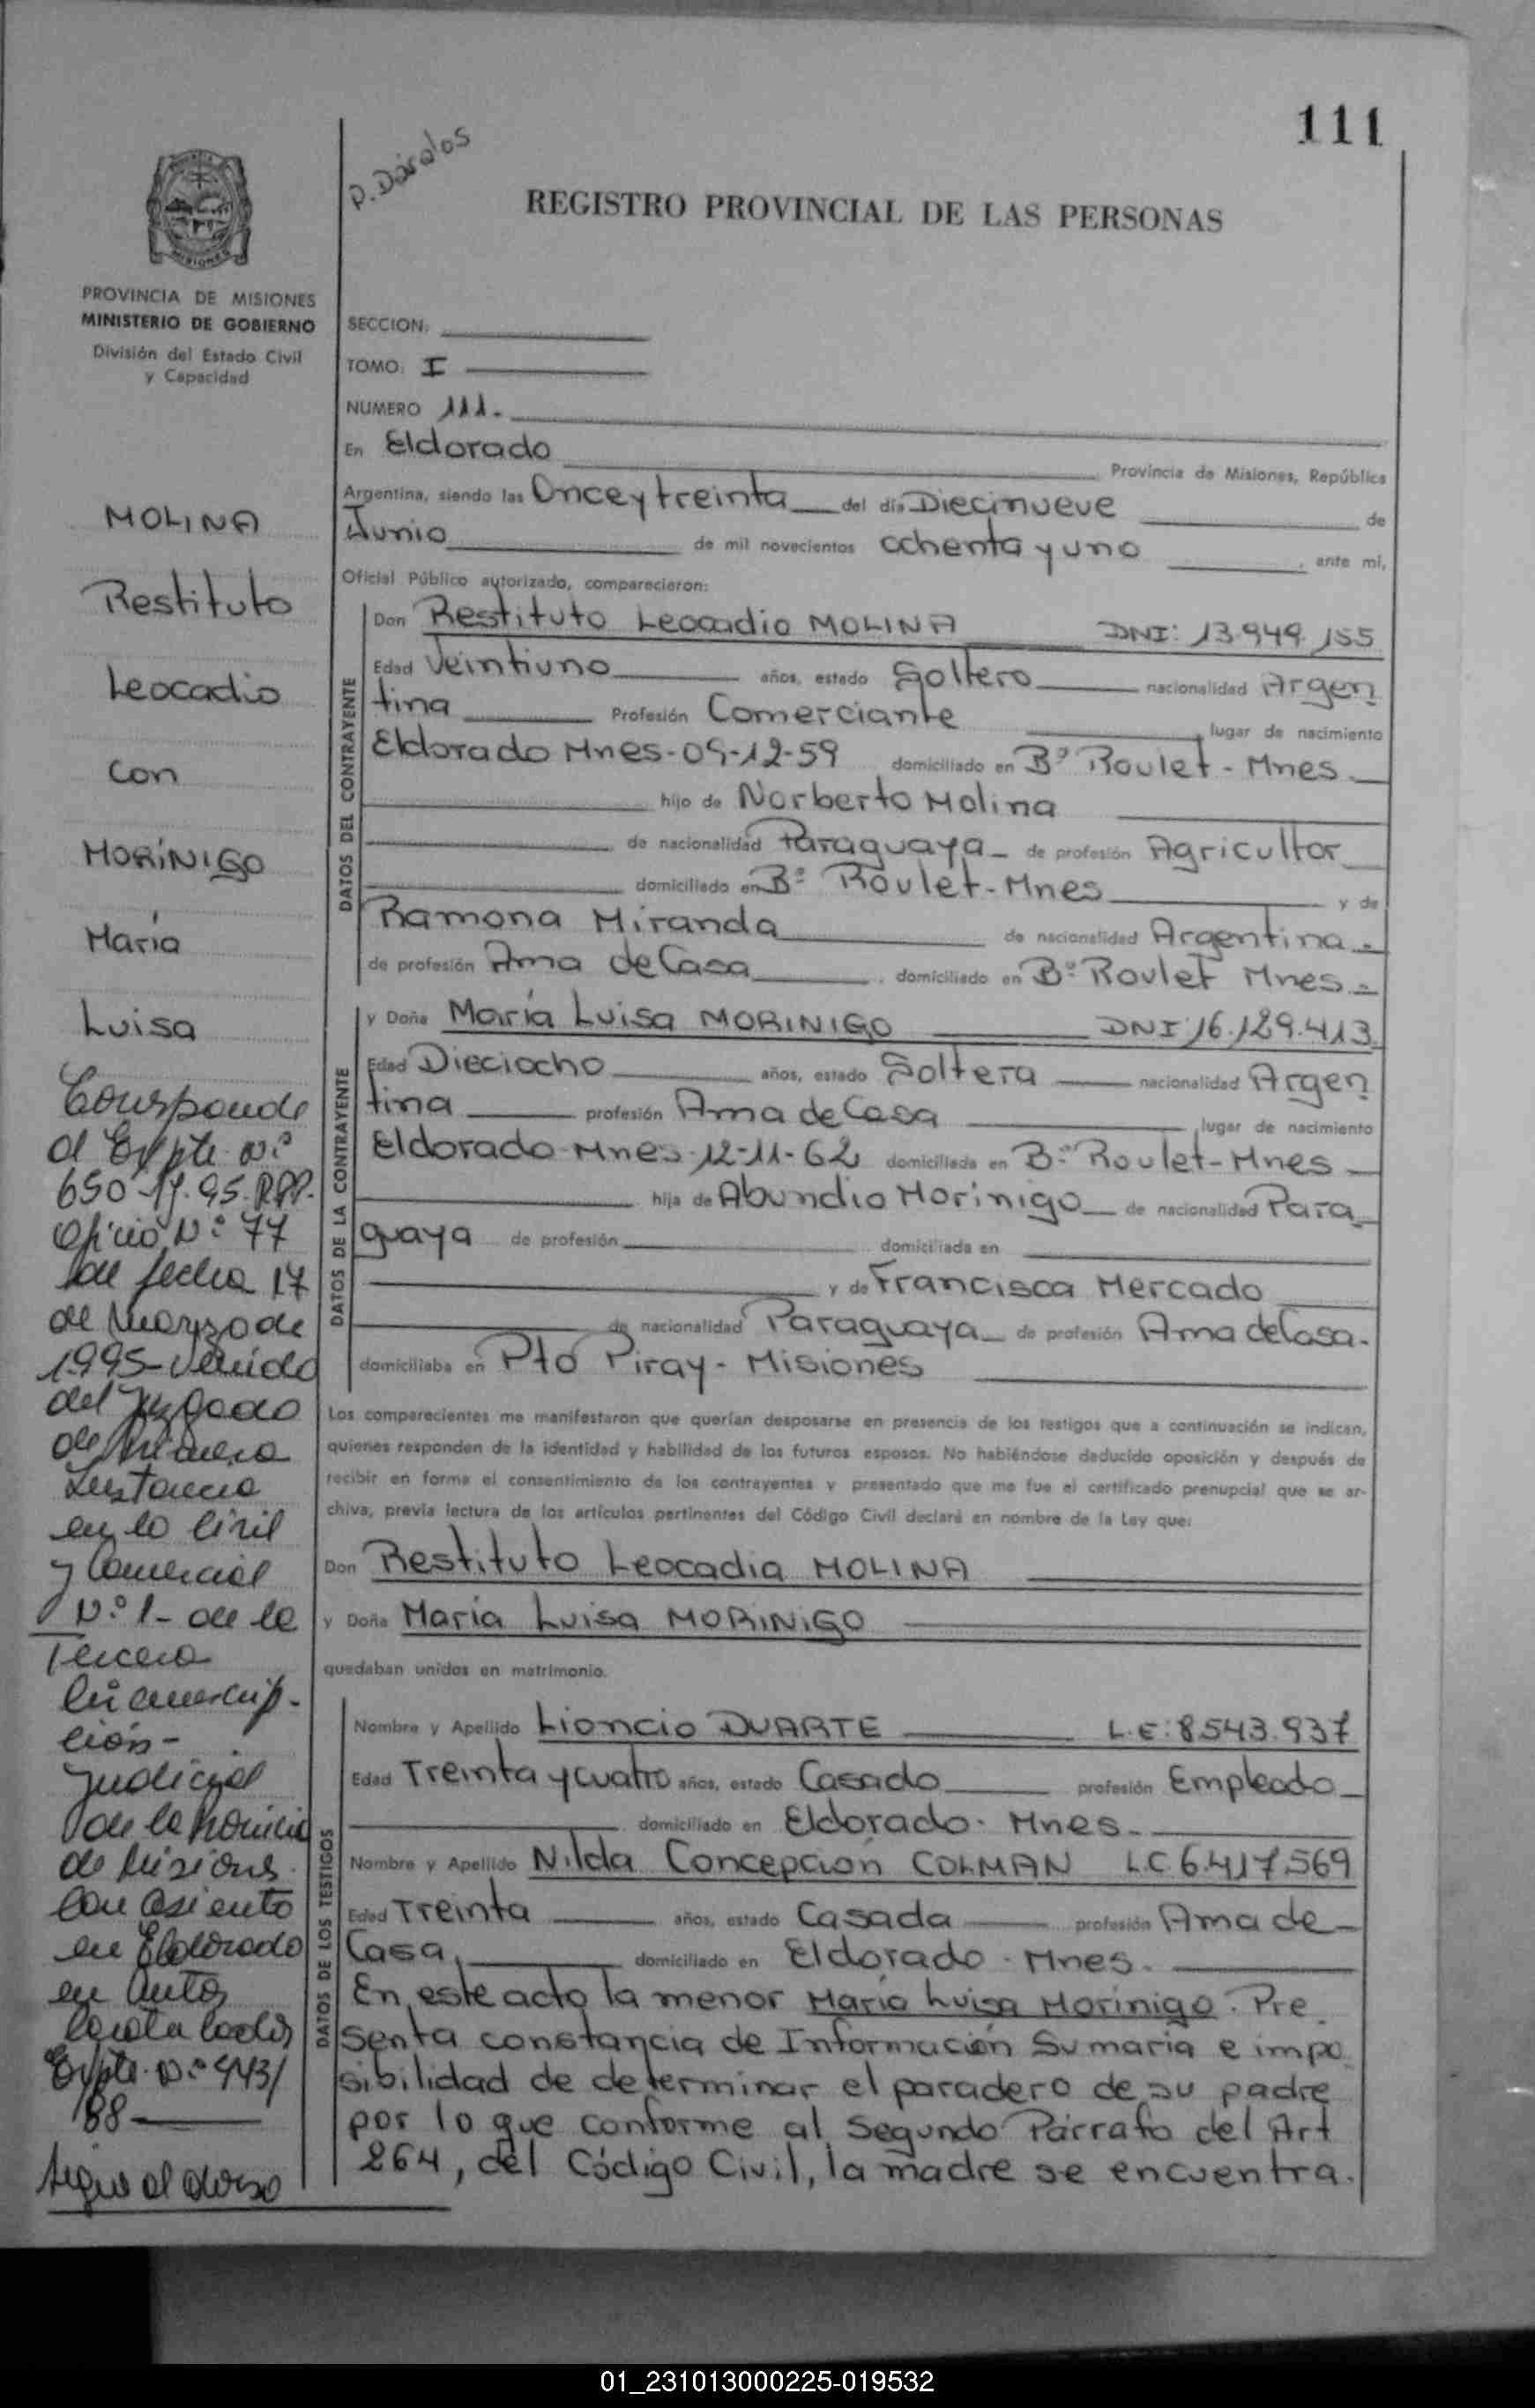 111
P. Dávalos
REGISTRO PROVINCIAL DE LAS PERSONAS
MISIONES
PROVINCIA DE MISIONES
MINISTERIO DE GOBIERNO
División del Estado Civil
y Capacidad
SECCION:
TOMO: I
NUMERO 111.
En Eldorado Provincia de Misiones, República
Argentina, siendo las Once y treinta del día Diecinueve de
Junio de mil novecientos ochenta y uno, ante mí,
Oficial Público autorizado, comparecieron:
DATOS DEL CONTRAYENTE
Don Restituto Leocadio MOLINA DNI: 13.949.155
Edad Veintiuno años, estado Soltero nacionalidad Argen
tina Profesión Comerciante, lugar de nacimiento
Eldorado Mnes-09-12-59 domiciliado en Bº Roulet - Mnes.
hijo de Norberto Molina
de nacionalidad Paraguaya de profesión Agricultor
domiciliado en Bº Roulet-Mnes y de
Ramona Miranda de nacionalidad Argentina.
de profesión Ama de Casa, domiciliado en Bº Roulet Mnes.
DATOS DE LA CONTRAYENTE
y Doña María Luisa MORINIGO DNI 16.129.413
Edad Dieciocho años, estado Soltera nacionalidad Argen
tina profesión Ama de Casa, lugar de nacimiento
Eldorado-Mnes-12-11-62 domiciliada en Bº Roulet-Mnes
hija de Abundio Morínigo de nacionalidad Para
guaya de profesión domiciliada en
y de Francisca Mercado
de nacionalidad Paraguaya de profesión Ama de Casa.
domiciliaba en Pto Piray - Misiones
Los comparecientes me manifestaron que querían desposarse en presencia de los testigos que a continuación se indican,
quienes responden de la identidad y habilidad de los futuros esposos. No habiéndose deducido oposición y después de
recibir en forma el consentimiento de los contrayentes y presentado que me fue el certificado prenupcial que se ar-
chiva, previa lectura de los artículos pertinentes del Código Civil declaré en nombre de la Ley que:
Don Restituto Leocadia MOLINA
y Doña María Luisa MORINIGO
quedaban unidos en matrimonio.
DATOS DE LOS TESTIGOS
Nombre y Apellido Lioncio DUARTE L.E: 8543.937
Edad Treinta y cuatro años, estado Casado profesión Empleado
domiciliado en Eldorado. Mnes.
Nombre y Apellido Nilda Concepción COLMAN L.C 6.417.569
Edad Treinta años, estado Casada profesión Ama de
Casa, domiciliado en Eldorado - Mnes.
En este acto la menor María Luisa Morinigo. Pre
senta constancia de Información Sumaria e impo
sibilidad de determinar el paradero de su padre
por lo que conforme al Segundo Párrafo del Art
264, del Código Civil, la madre se encuentra.
MOLINA
Restituto
Leocadio
con
MORÍNIGO
María
Luisa
Corresponde
al Expte. Nº
650-"J". 95. RPP.
Oficio Nº 77
de fecha 17
de Marzo de
1.995- venido
del Juzgado
de Primera
Instancia
en lo Civil
y Comercial
Nº 1- de la
Tercera
Circunscrip-
ción-
Judicial
de la Provincia
de Misiones
con asiento
en Eldorado
en Autos
Expte. Nº 443/
88
Sigue al dorso
01_231013000225-019532